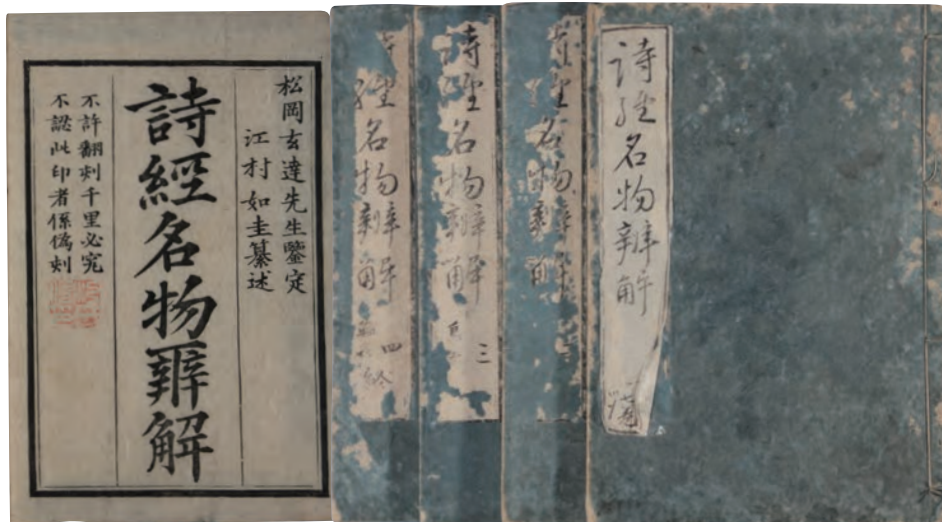 松岡玄達先生鑒定
江村如圭纂述
詩經名物辨解
不許翻刻千里必究
不認此印者係僞刻
詩經名物辨解
名物辨解
詩經名物辨解
三
名物辨解
四終